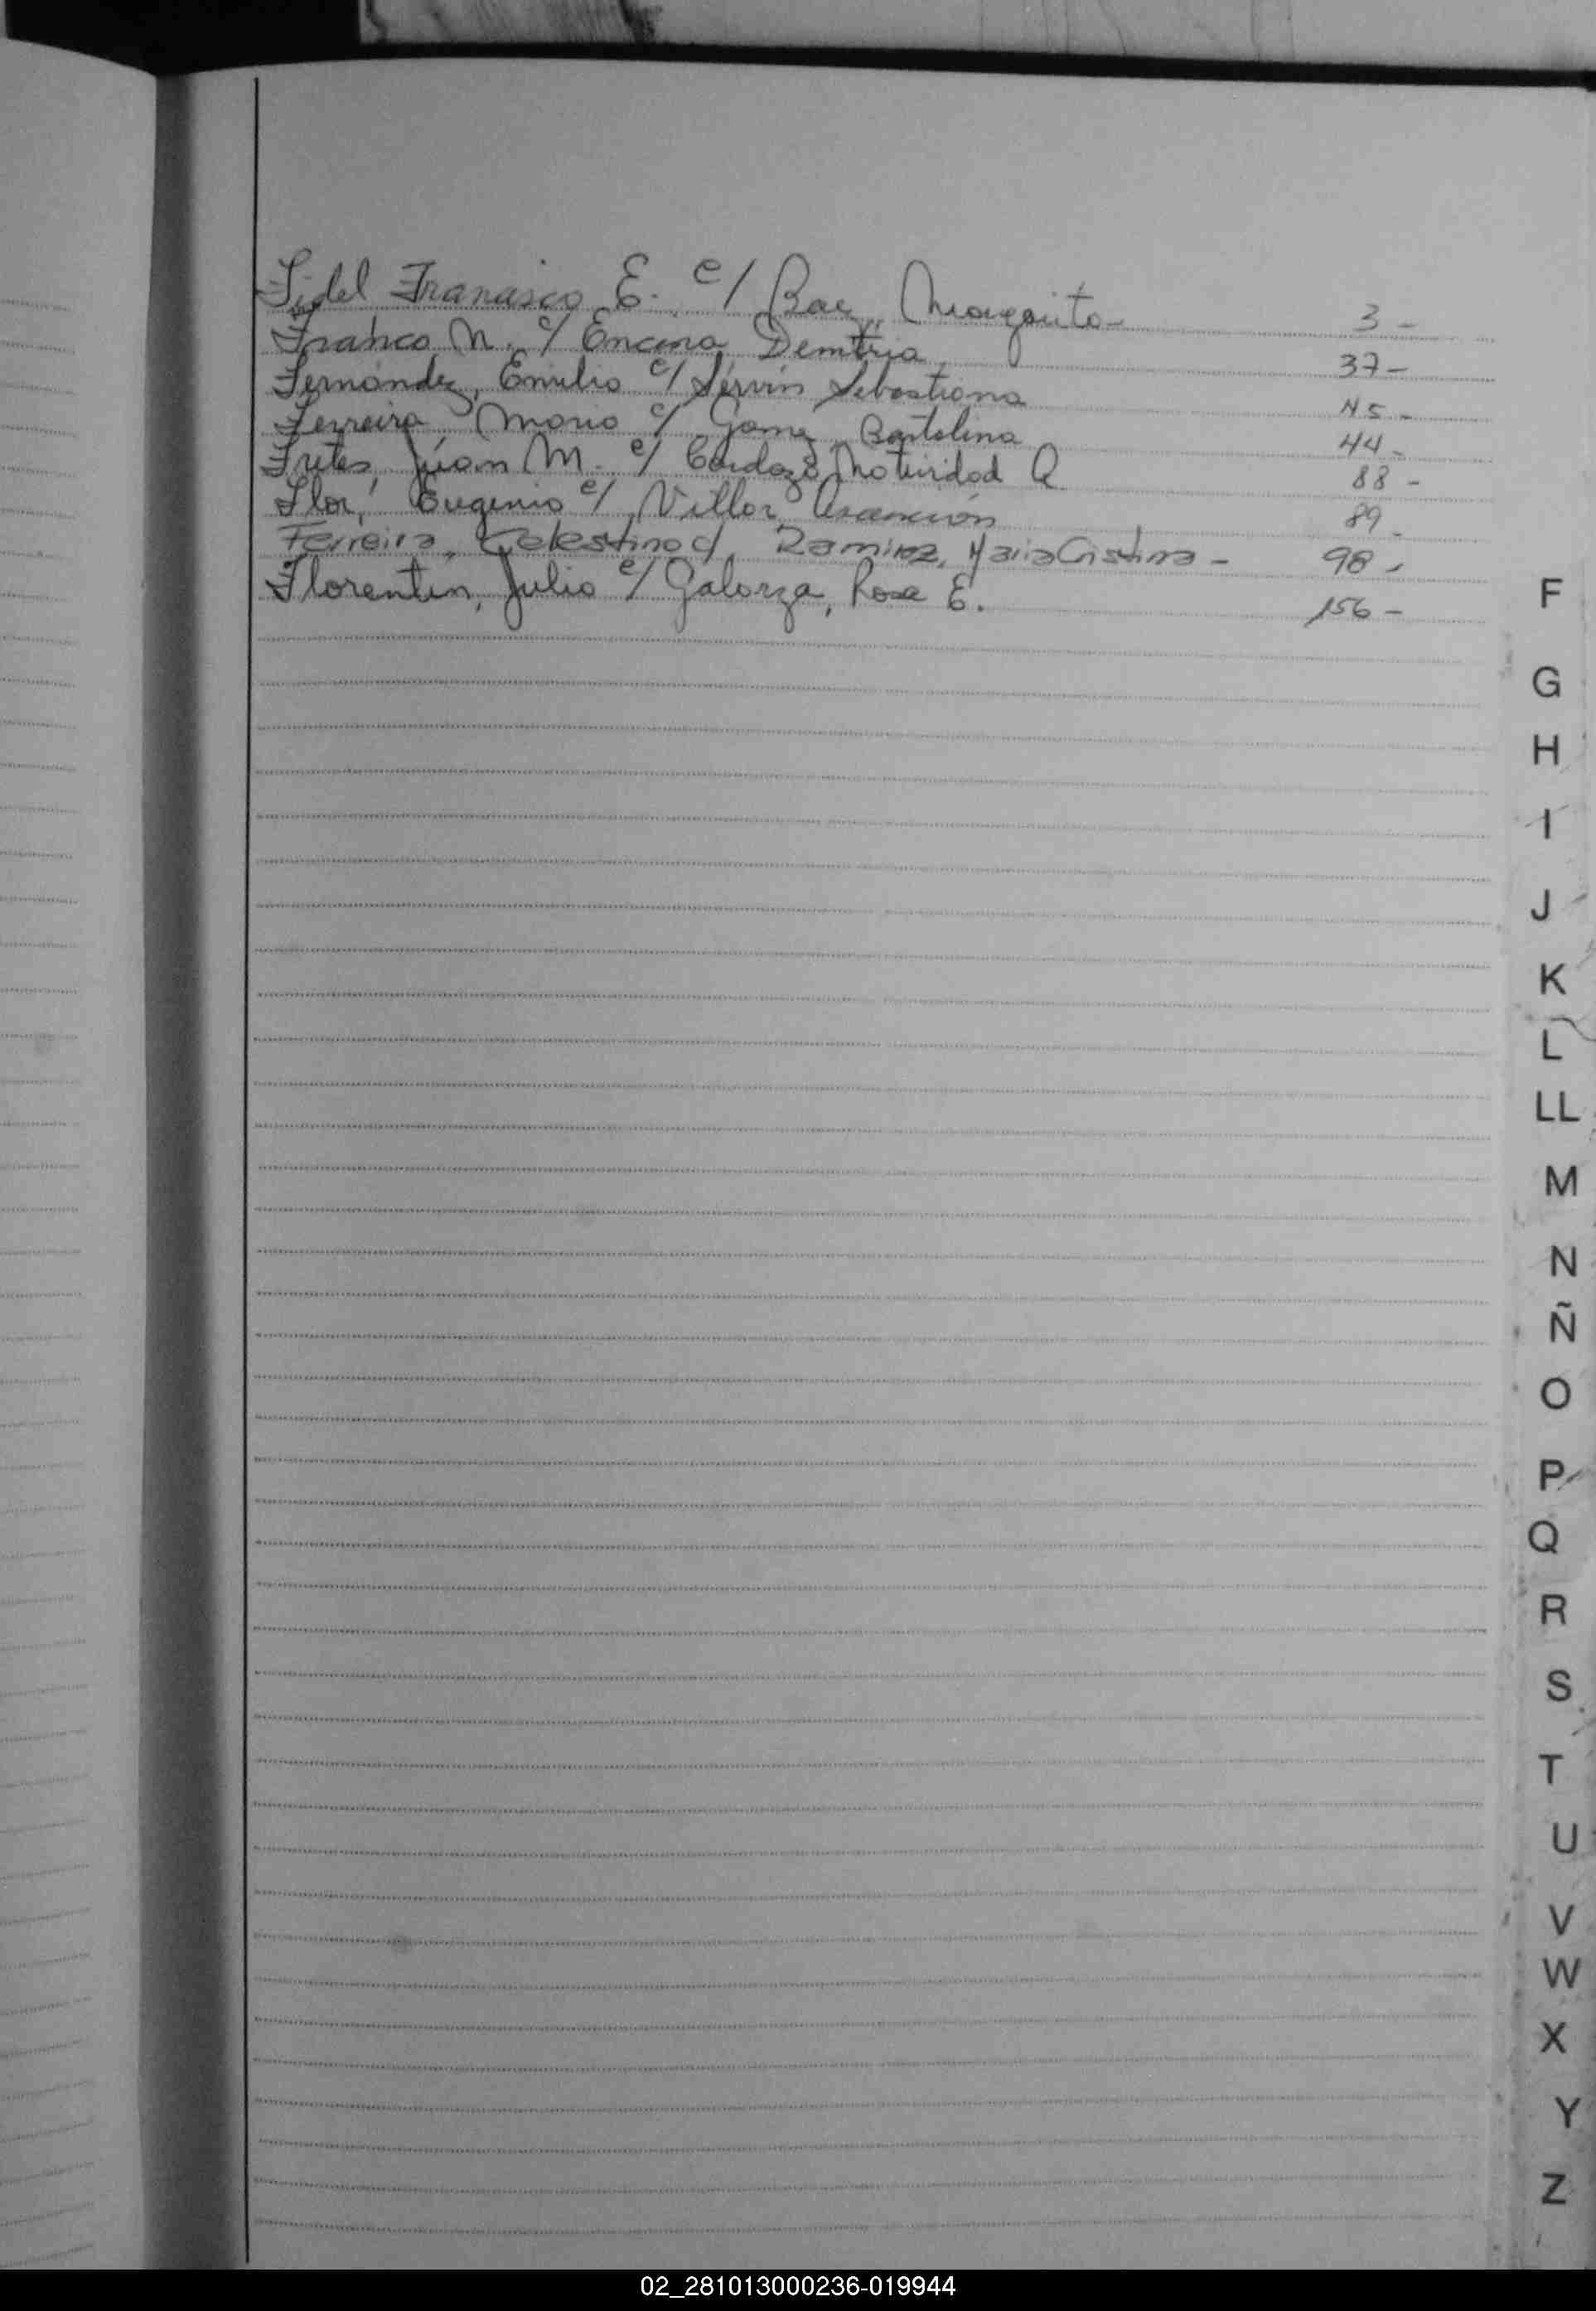 Fidel Francisco E. c/ Baez, Margarita- 3 -
Franco N. c/ Encina, Demetria 37 -
Fernández, Emilio c/ Servín Sebastiana 45 -
Ferreira, Mario c/ Gamez Bartolina 44 -
Fretes, Juan M. c/ Cardozo, Natividad Q 88 -
Flor, Eugenio c/ Villar Asanción 89 -
Ferreira, Celestino c/. Ramirez, Maria Cristina - 98 -
Florentín, Julio c/ Galarza, Rosa E. 156 -
F
G
H
I
J
K
L
LL
M
N
Ñ
O
P
Q
R
S
T
U
V
W
X
Y
Z
02_281013000236-019944